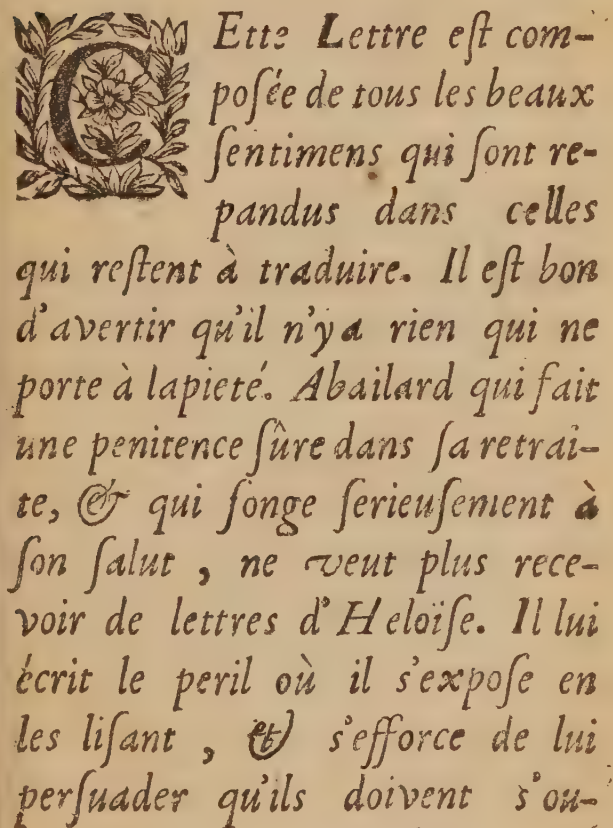 CEtte Lettre eſt com-
poſée de tous les beaux
ſentimens qui ſont re-
pandus dans celles
qui reſtent à traduire. Il eſt bon
d'avertir qu'il n'y a rien qui ne
porte à la pieté. Abailard qui fait
une penitence ſûre dans ſa retrai-
te, & qui ſonge ſerieuſement à
ſon ſalut, ne veut plus rece-
voir de lettres d'Heloïſe. Il lui
écrit le peril où il s'expoſe en
les liſant, & s'efforce de lui
perſuader qu'ils doivent s'ou-